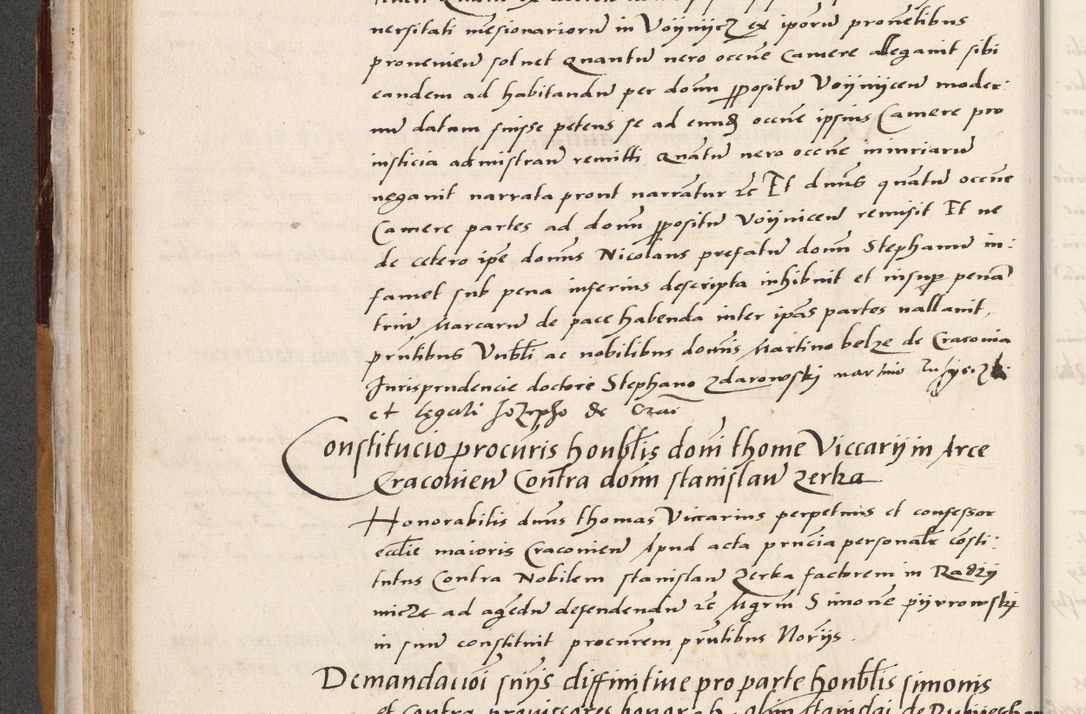 nersitati mesionariorū in Voijnijcz ex iporū provētibus
provenieñ solvet Quantū vero occne Camere allegavit sibi
eandem ad habitandū per donū ppositū Voijnijceñ moder:
nū datam fuisse petens se ad eund occne ipsius Camere pro
iusticia admistrañ remitti Quatū vero occne iniuriarū
negavit narrata prout narrātur rc Et dnus quātū occne
Camere partes ad donū ppositū Voijniceñ remisit Et ne
de cetero ipe donus Nicolaus prefatū donū Stephanū in:
famet sub pena inferius descripta inhibuit et insup penā
triū Marcarū de pace habenda inter ipas partes vallavit,
pntibus Vnbli ac nobilibus donis Martino belze de Cracovia
Jurisprudencie doctore Stephano Zdarowskj martino
et legali Jozepho de
Constitucio procuris honblis doni thome Viccarij in Arce
Cracovieñ Contra donū stanislaū Zerka
Honorabilis dnus thomas Viccarius perpetuus et confessor
ecclie maioris Cracovieñ Apud acta pnčia personalr costi:
tutus Contra Nobilem stanislaū Zerka factorem in Radzij
micze ad agēdū defendendū rc Mgrm Simonē pijvrowskj
in suū constituit procurem pntibus Norijs.
Demandacioi snijs diffinitive pro parte honblis simonis
et Contra provisores honorab olim stanislai de